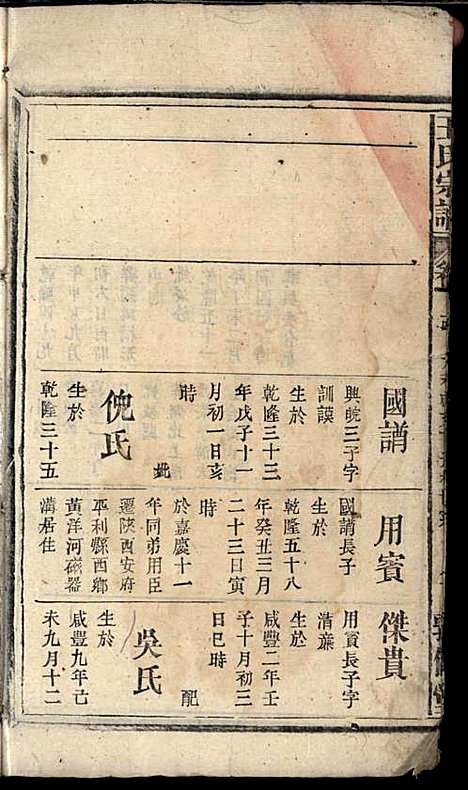 王氏宗譜
國誦
興皖三子字
訓謨
生於
乾隆三十三
年戊子十一
月初一日亥
時
配
倪氏
生於
乾隆三十五
用賓
國誦長子
生於
乾隆五十八
年癸丑三月
二十三日寅
時
於嘉慶十一
年同弟用臣
遷陝西安府
平利縣西鄉
黃洋河磁器
溝居住
傑貴
用賓長子字
清廉
生於
咸豐二年壬
子十月初三
日巳時
配
吳氏
生於
咸豐九年己
未九月十二